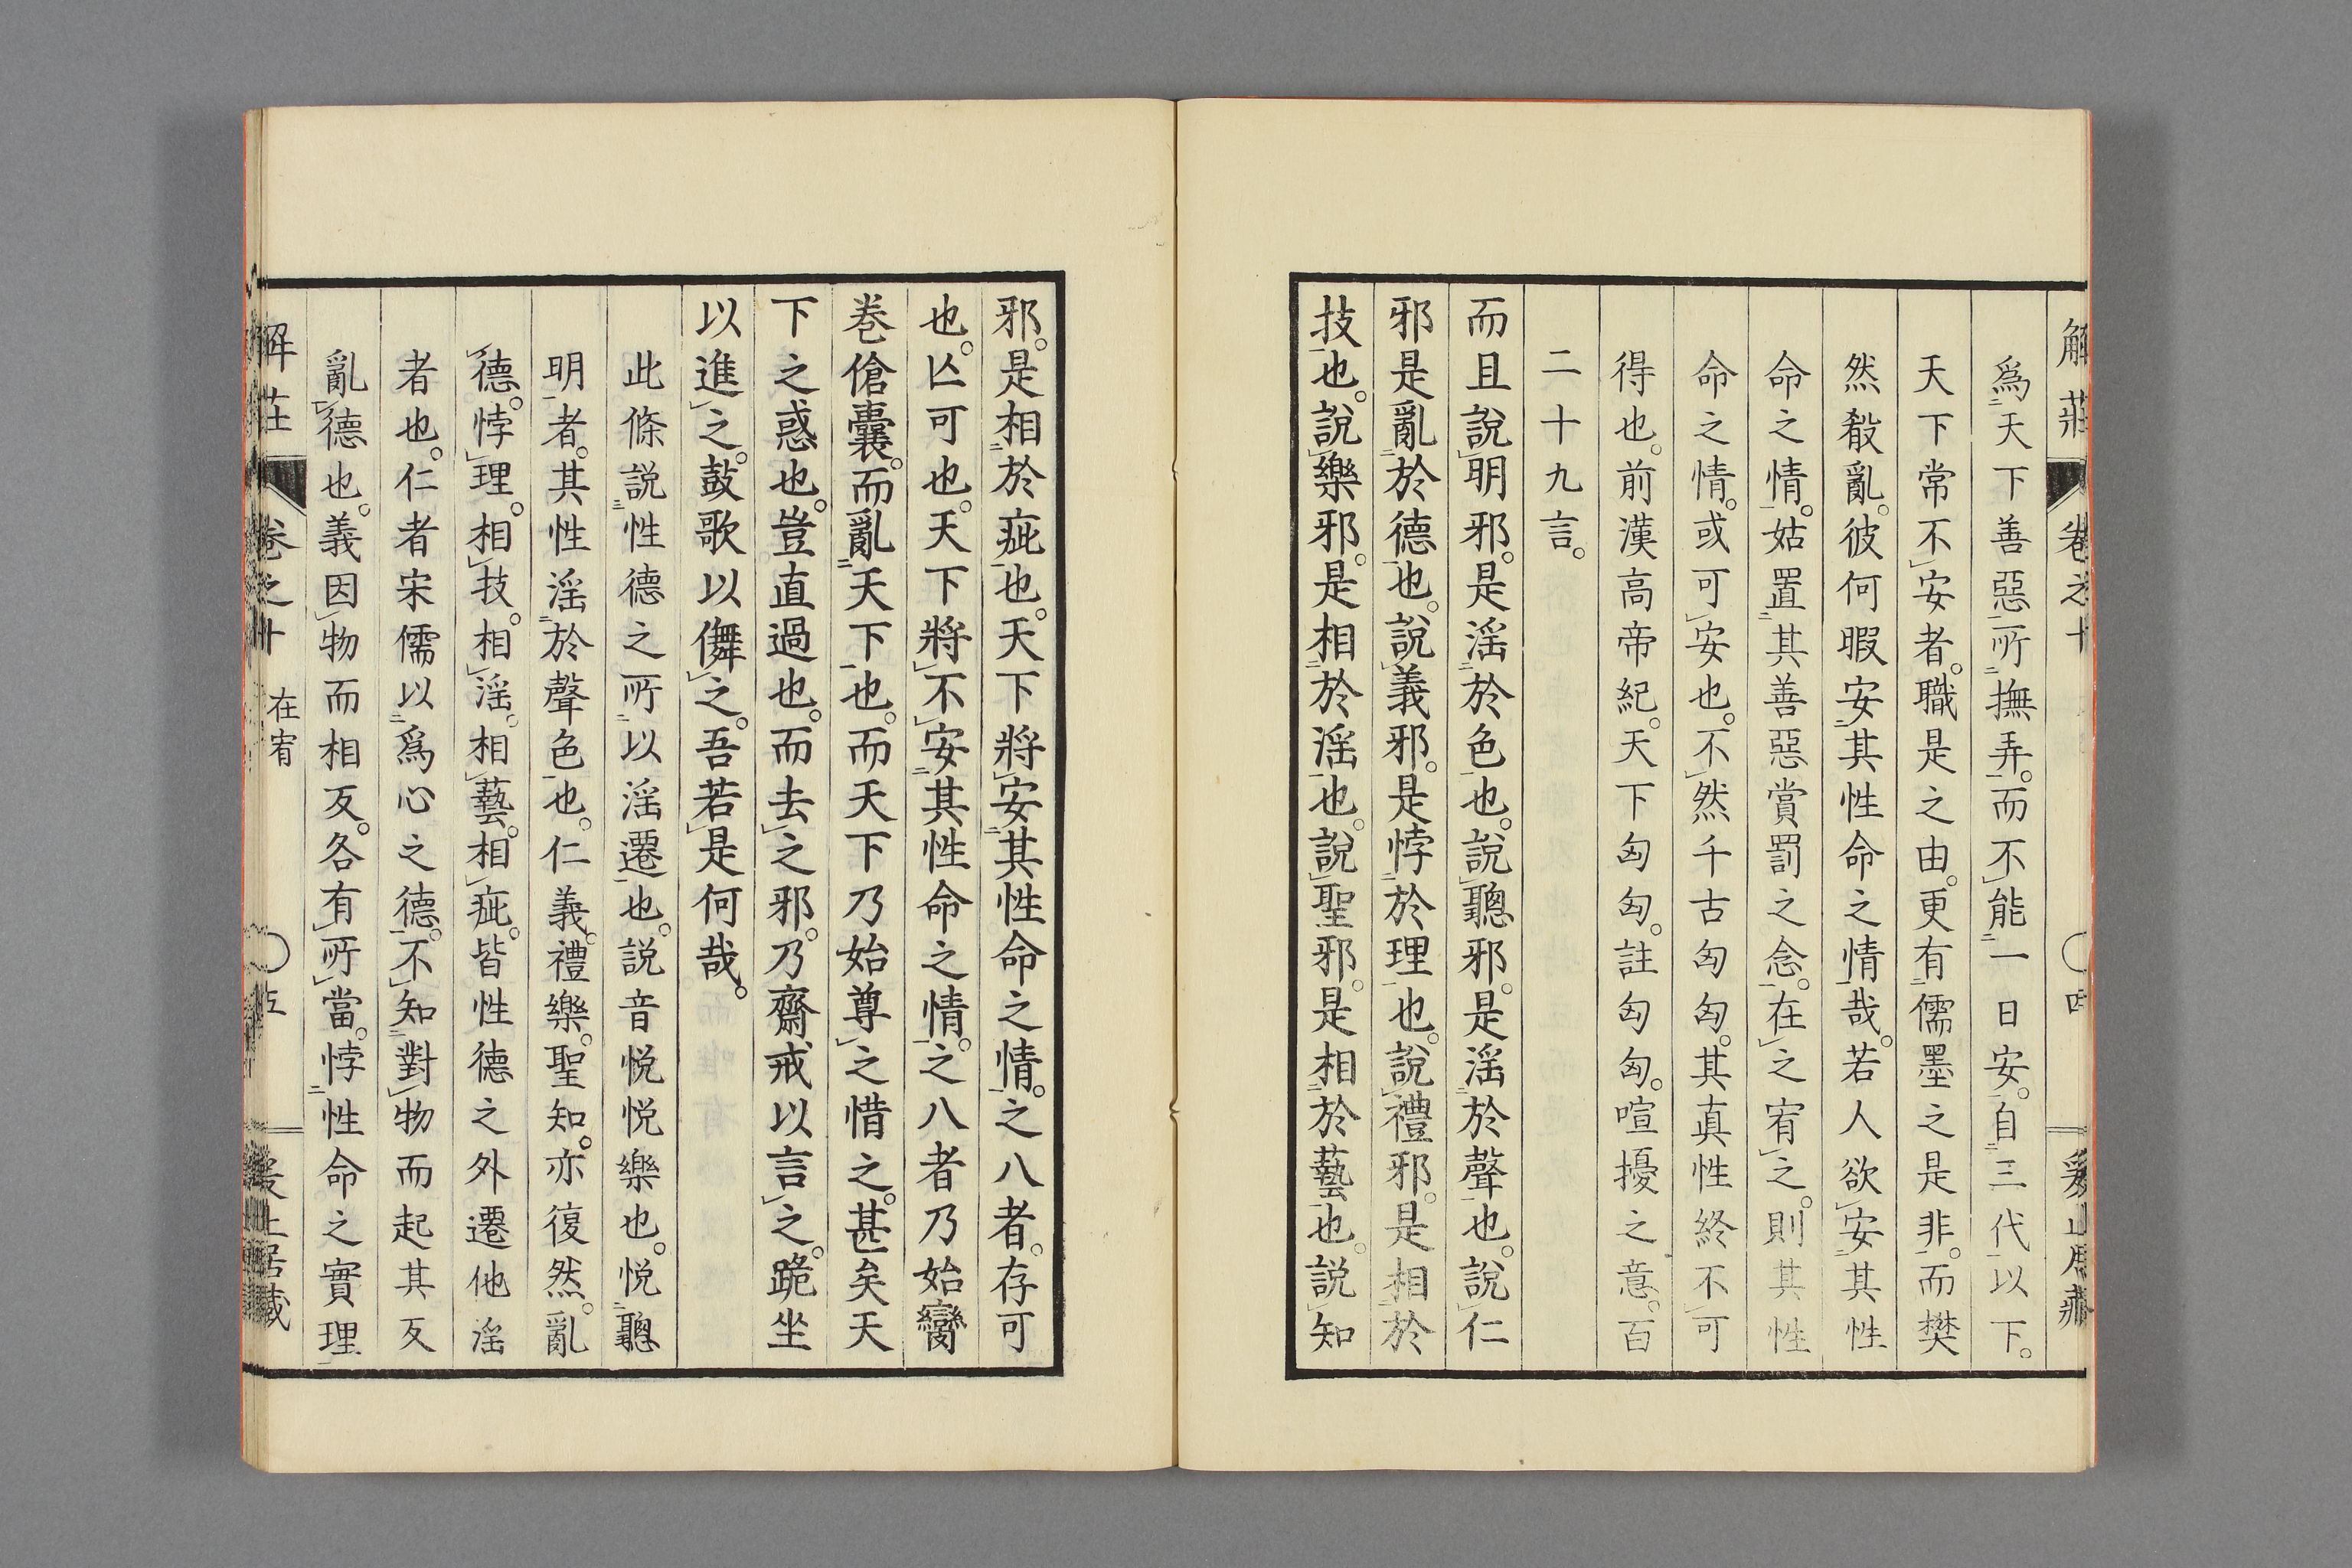 解莊 卷之十 四
爲天下善惡所撫弄。而不能一日安。自三代以下。
天下常不安者。職是之由。更有儒墨之是非。而樊
然殽亂。彼何暇安其性命之情哉。若人欲安其性
命之情。姑置其善惡賞罰之念。在之宥之。則其性
命之情。或可安也。不然千古匈匈。其真性終不可
得也。前漢高帝紀。天下匈匈。註匈匈。喧擾之意。百
二十九言。
而且説明邪。是淫於色也。説聰邪。是淫於聲也。説仁
邪。是亂於德也。説義邪。是悖於理也。説禮邪。是相於
技也。説樂邪。是相於淫也。説聖邪。是相於藝也。説知
邪。是相於疵也。天下將安其性命之情。之八者。存可
也。亾可也。天下將不安其性命之情。之八者乃始臠
巻傖囊。而亂天下也。而天下乃始尊之惜之。甚矣天
下之惑也。豈直過也。而去之邪。乃齋戒以言之。跪坐
以進之。鼓歌以儛之。吾若是何哉。
此條説性德之所以淫遷也。説音悦悦樂也。悦聰
明者。其性淫於聲色也。仁義。禮樂。聖知。亦復然。亂
德。悖理。相技。相淫。相藝。相疵。皆性德之外遷他淫
者也。仁者宋儒以爲心之德。不知對物而起其反
亂德也。義因物而相反。各有所當。悖性命之實理
解莊 卷之十 在宥 五